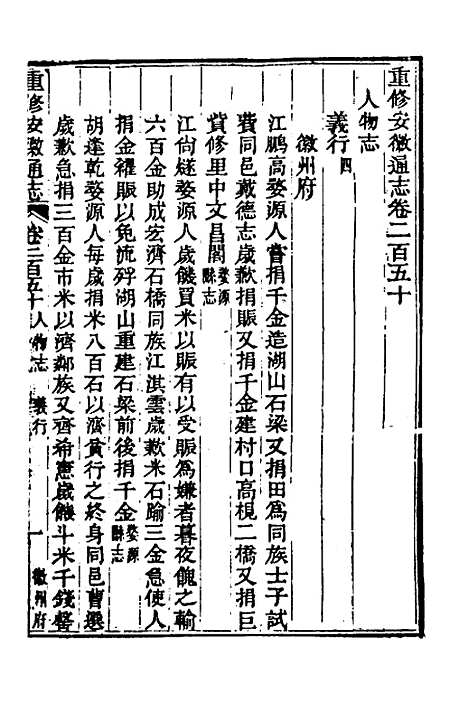 重修安徽通志卷二百五十
人物志
義行四
徽州府
江鵬高婺源人嘗捐千金造湖山石梁又捐田爲同族士子試
費同邑戴德志歲歉捐賑又捐千金建村口高梘二橋又捐巨
貲修里中文昌閣婺源縣志
江尙燧婺源人歲饑買米以賑有以受賑爲嫌者暮夜餽之輸
六百金助成宏濟石橋同族江淇雲歲歉米石踰三金急使人
捐金糴賑以免流殍湖山重建石梁前後捐千金婺源縣志
胡逢乾婺源人每歲捐米八百石以濟貧行之終身同邑曹選
歲歉急捐三百金市米以濟鄰族又齊希憲歲饑斗米千錢罄
重修安徽通志 卷二百五十 人物志 義行 一 徽州府